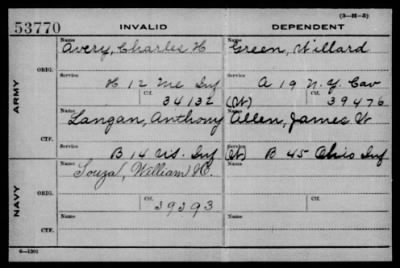 (3—H—3)
53770 INVALID DEPENDENT
Name Name
Avery, Charles H Green, Willard
ORIG. Service Service
H 12 Me Inf A 19 N.Y. Cav
Ctf. Ctf.
34132 (W) 39476
ARMY
Name Name
Langan, Anthony Allen, James W
CTF. Service Service
B 14 U.S. Inf (W) B 45 Ohio Inf
Name Name
Souza, William H.
ORIG. Ctf. Ctf.
29293
NAVY
Name Name
CTF.
6—1301